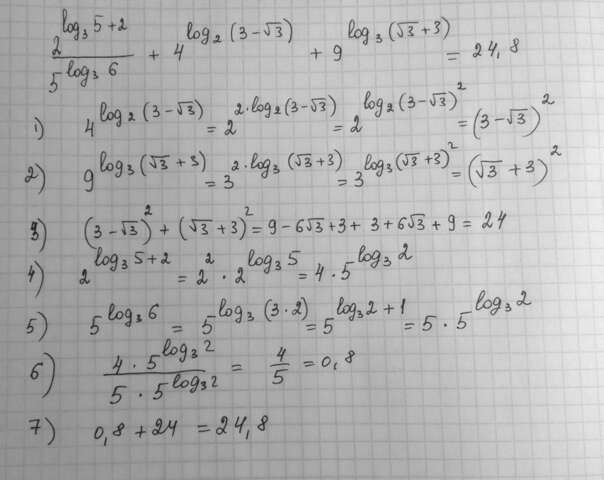 2^(log₃5+2) / 5^(log₃6) + 4^(log₂(3-√3)) + 9^(log₃(√3+3)) = 24,8
1) 4^(log₂(3-√3)) = 2^(2·log₂(3-√3)) = 2^(log₂(3-√3)²) = (3-√3)²
2) 9^(log₃(√3+3)) = 3^(2·log₃(√3+3)) = 3^(log₃(√3+3)²) = (√3+3)²
3) (3-√3)² + (√3+3)² = 9-6√3+3+3+6√3+9 = 24
4) 2^(log₃5+2) = 2²·2^(log₃5) = 4·5^(log₃2)
5) 5^(log₃6) = 5^(log₃(3·2)) = 5^(log₃2+1) = 5·5^(log₃2)
6) 4·5^(log₃2) / 5·5^(log₃2) = 4/5 = 0,8
7) 0,8+24 = 24,8